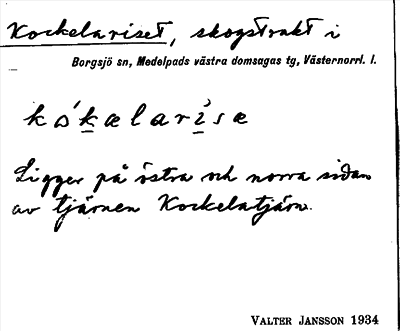 Kockelariset, skogstrakt i
Borgsjö sn, Medelpads västra domsagas tg, Västernorrl. l.
Ligger på östra och norra sidan
av tjärnen Kockelatjärn.
VALTER JANSSON 1934